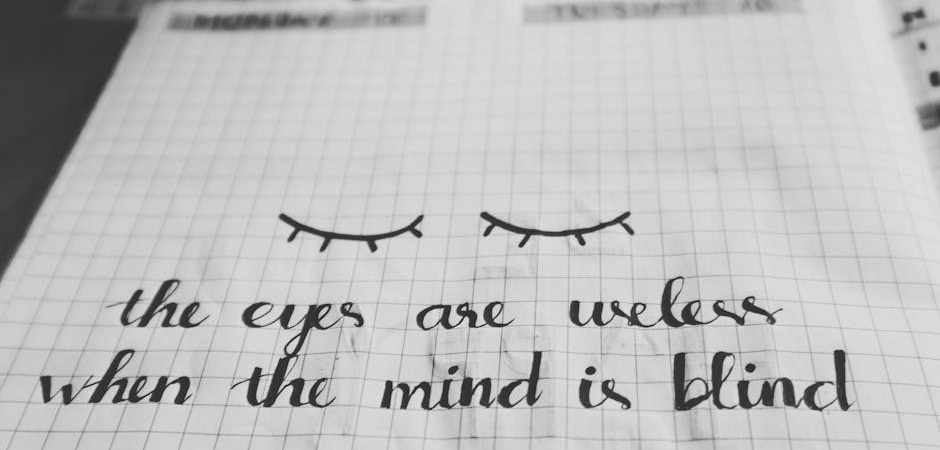 MONDAY TUESDAY
the eyes are useless
when the mind is blind